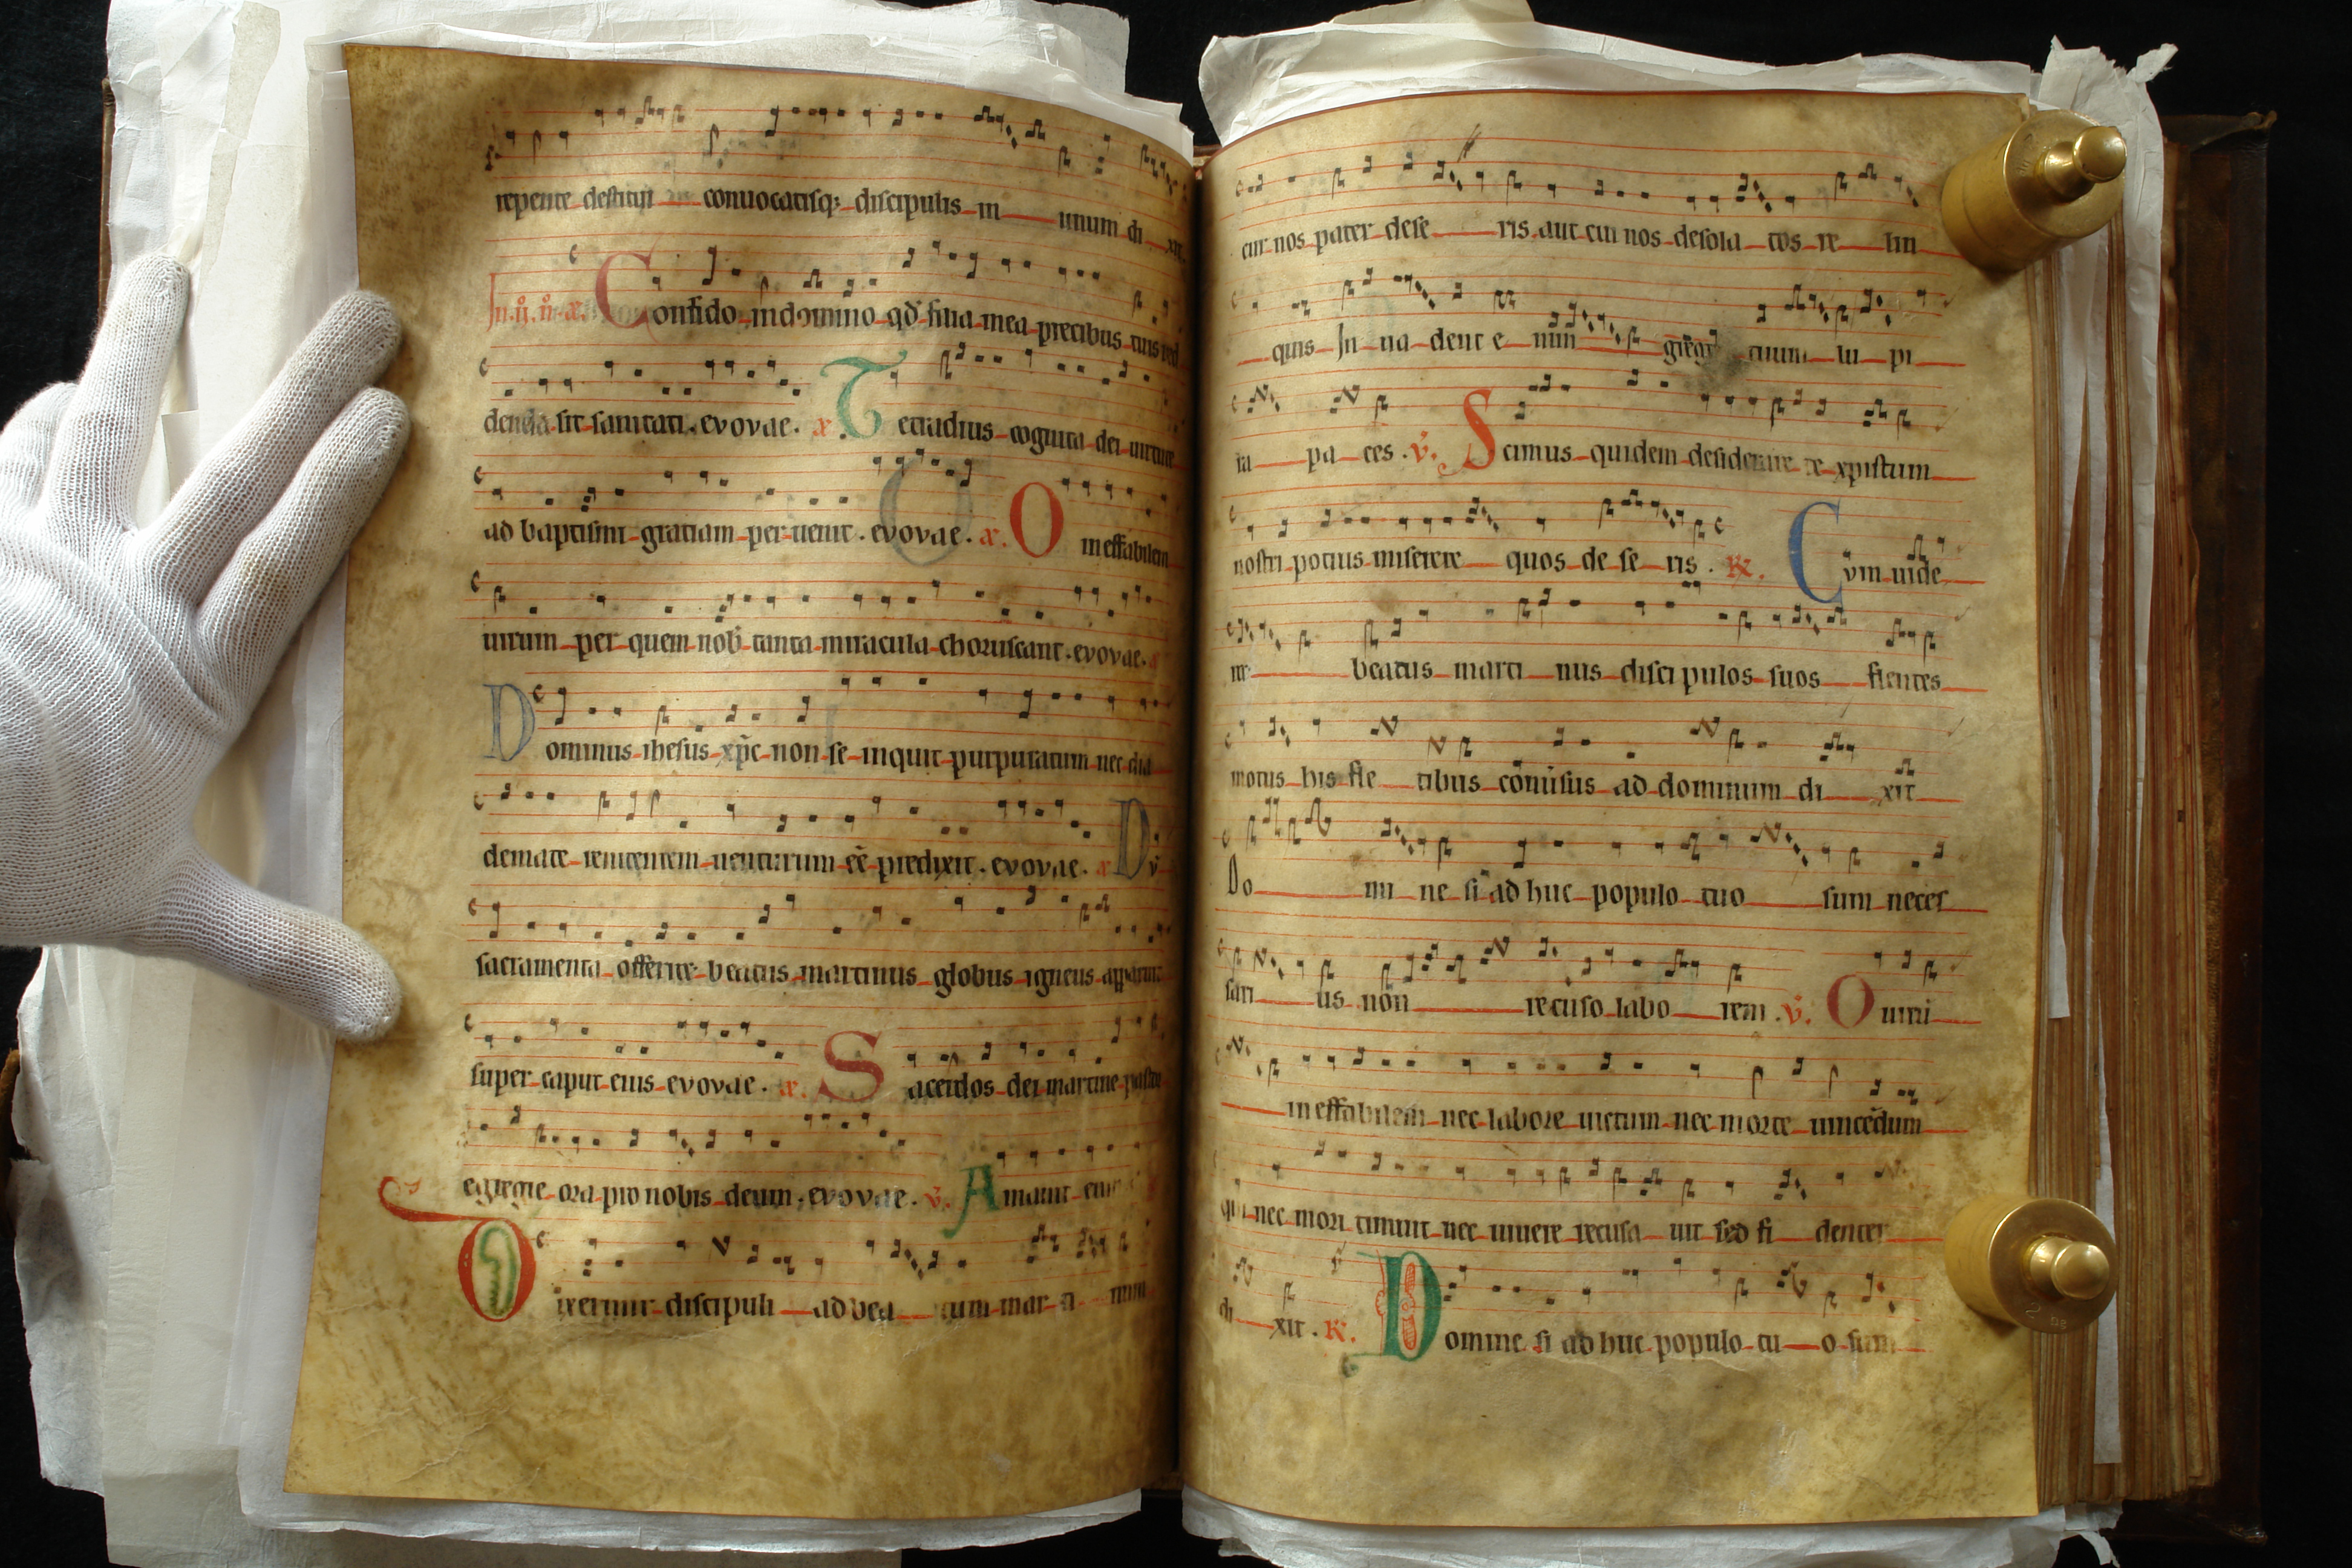 repente destituit conuocatisq; discipulis in unum di xit
In .iii. n. a. Confido in domino qd filia mea precibus tuis red
denda sit sanitati. evovae. a. Tetradius cognita dei uirtute
ad baptismi gratiam peruenit. evovae. a. O ineffabilem
uirum per quem nob tanta miracula choruscant. evovae. a
Dominus ihesus xpc non se inquit purpuratum nec dia
demate renitentem uenturum eē predixit. evovae. a Dv̄
sacramenta offerret beatus martinus globus igneus apparuit
super caput eius evovae. a. Sacerdos dei martine pastor
egregie ora pro nobis deum. evovae. v̄. Amauit eum
Dixerunt discipuli ad bea tum mar ti num
cur nos pater dese ris aut cui nos desola tos re lin
quis In ua dent e nim gregē tuum lu pi
ra pa ces. v̄. Scimus quidem desiderare te xpistum
nostri potius miserere quos de se ris. R. Cvm uide
ret beatus marti nus discipulos suos flentes
motus his fle tibus cōuersus ad dominum di xit
Do mi ne si ad huc populo tuo sum neces
sari us non recuso labo rem. v̄. O uirū
ineffabilem nec labore uictum nec morte uincēdum
qui nec mori timuit nec uiuere recusa uit sed fi denter
di xit. R. Domine si ad huc populo tu o sum